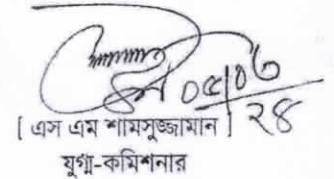 ০৫/০৬
২৪
[ এস এম শামসুজ্জামান ]
যুগ্ম-কমিশনার